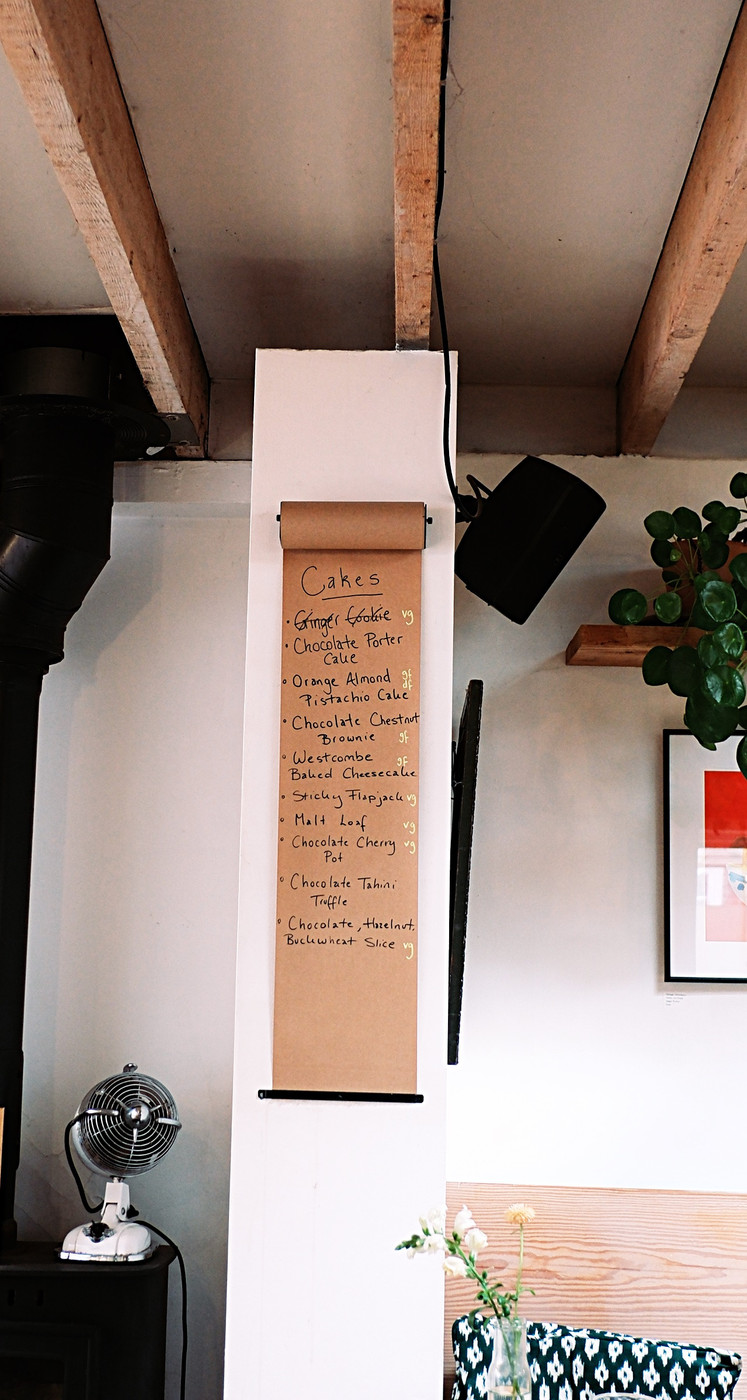 Cakes
• Ginger Cookie vg
• Chocolate Porter
Cake
• Orange Almond gf
Pistachio Cake df
• Chocolate Chestnut
Brownie gf
• Westcombe gf
Baked Cheesecake
• Sticky Flapjack vg
• Malt Loaf vg
• Chocolate Cherry vg
Pot
• Chocolate Tahini
Truffle
• Chocolate, Hazelnut,
Buckwheat Slice vg